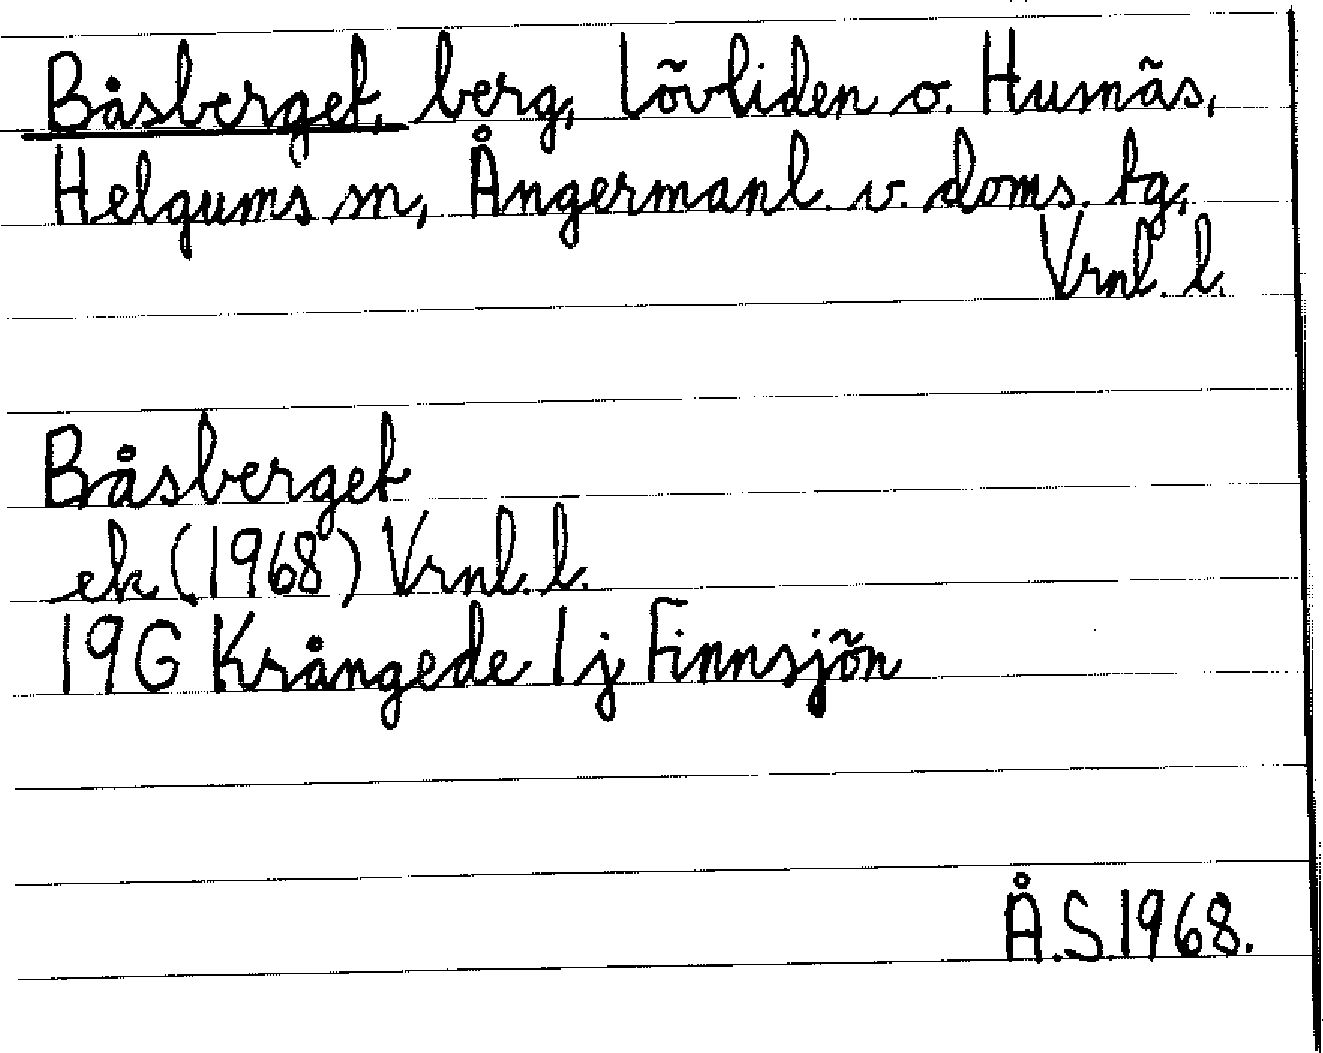 Båsberget, berg, Lövliden o. Husnäs,
Helgums sn, Ångermanl. v. doms. tg,
Vrnl. l.
Båsberget
ek (1968) Vrnl. l.
19G Krångede 1j Finnsjön
Å.S.1968.